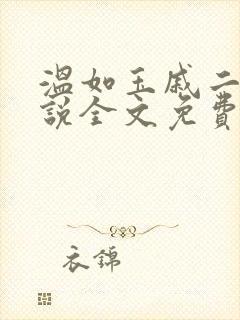 温如玉戚二
說全文免費
衣錦